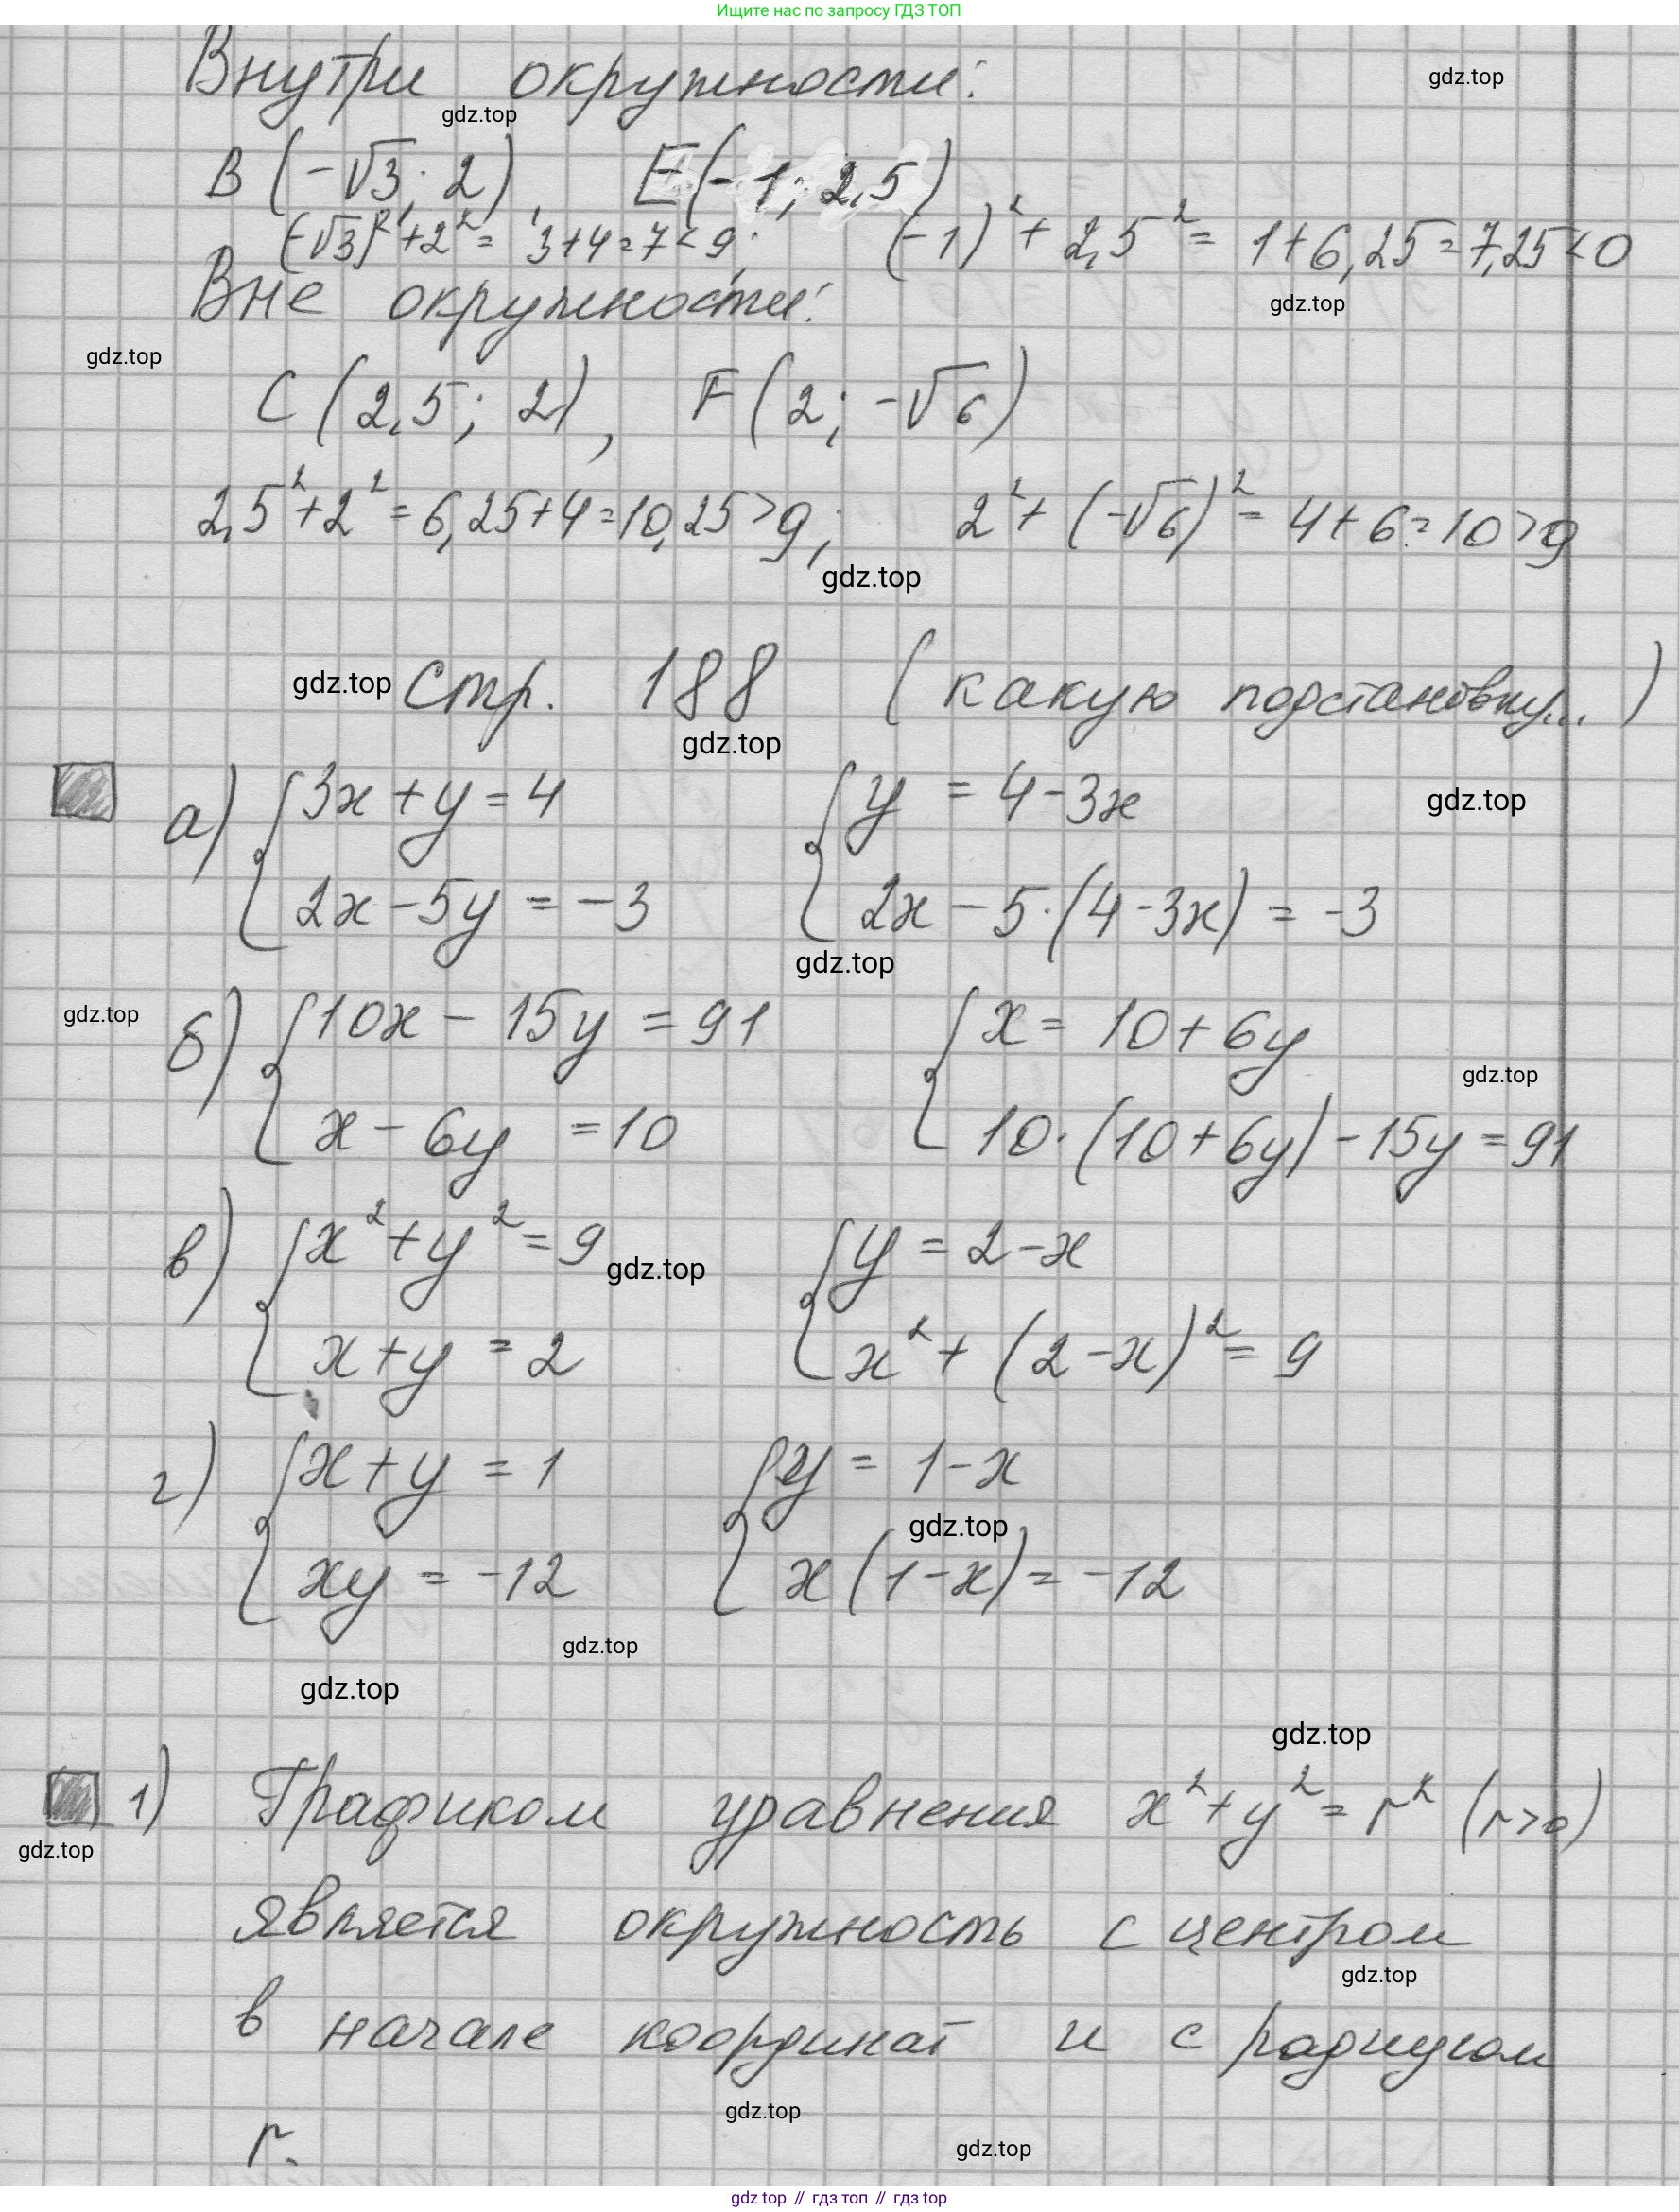 Ищите нас по запросу ГДЗ ТОП
Внутри окружности:
gdz.top
gdz.top
B (-√3; 2), E(-1; 2,5)
(-√3)² + 2² = 3+4=7<9; (-1)² + 2,5² = 1+6,25=7,25<0
Вне окружности:
gdz.top
gdz.top
C (2,5; 2), F(2; -√6)
2,5²+2² = 6,25+4=10,25>9; 2² + (-√6)² = 4+6=10>9
gdz.top
gdz.top Стр. 188 (какую подстановку...)
gdz.top
а) { 3x + y = 4 { y = 4-3x
gdz.top
2x - 5y = -3 2x - 5·(4-3x) = -3
gdz.top
gdz.top
б) { 10x - 15y = 91 { x = 10+6y
gdz.top
x - 6y = 10 10·(10+6y) - 15y = 91
в) { x² + y² = 9 { y = 2-x
gdz.top
x+y = 2 x² + (2-x)² = 9
г) { x+y = 1 { y = 1-x
gdz.top
xy = -12 x(1-x) = -12
gdz.top
gdz.top
gdz.top
1) Графиком уравнения x²+y² = r² (r>0)
gdz.top
является окружность с центром
gdz.top
в начале координат и с радиусом
gdz.top
r.
gdz.top
gdz top // гдз топ // гдз top